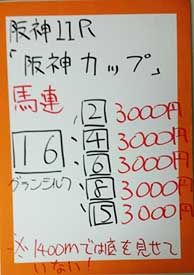 阪神11R
「阪神カップ」
馬連
2 3000円
4 3000円
16 : 6 3000円
グランシルク 8 3000円
15 3000円
※1400mでは底を見せて
いない!